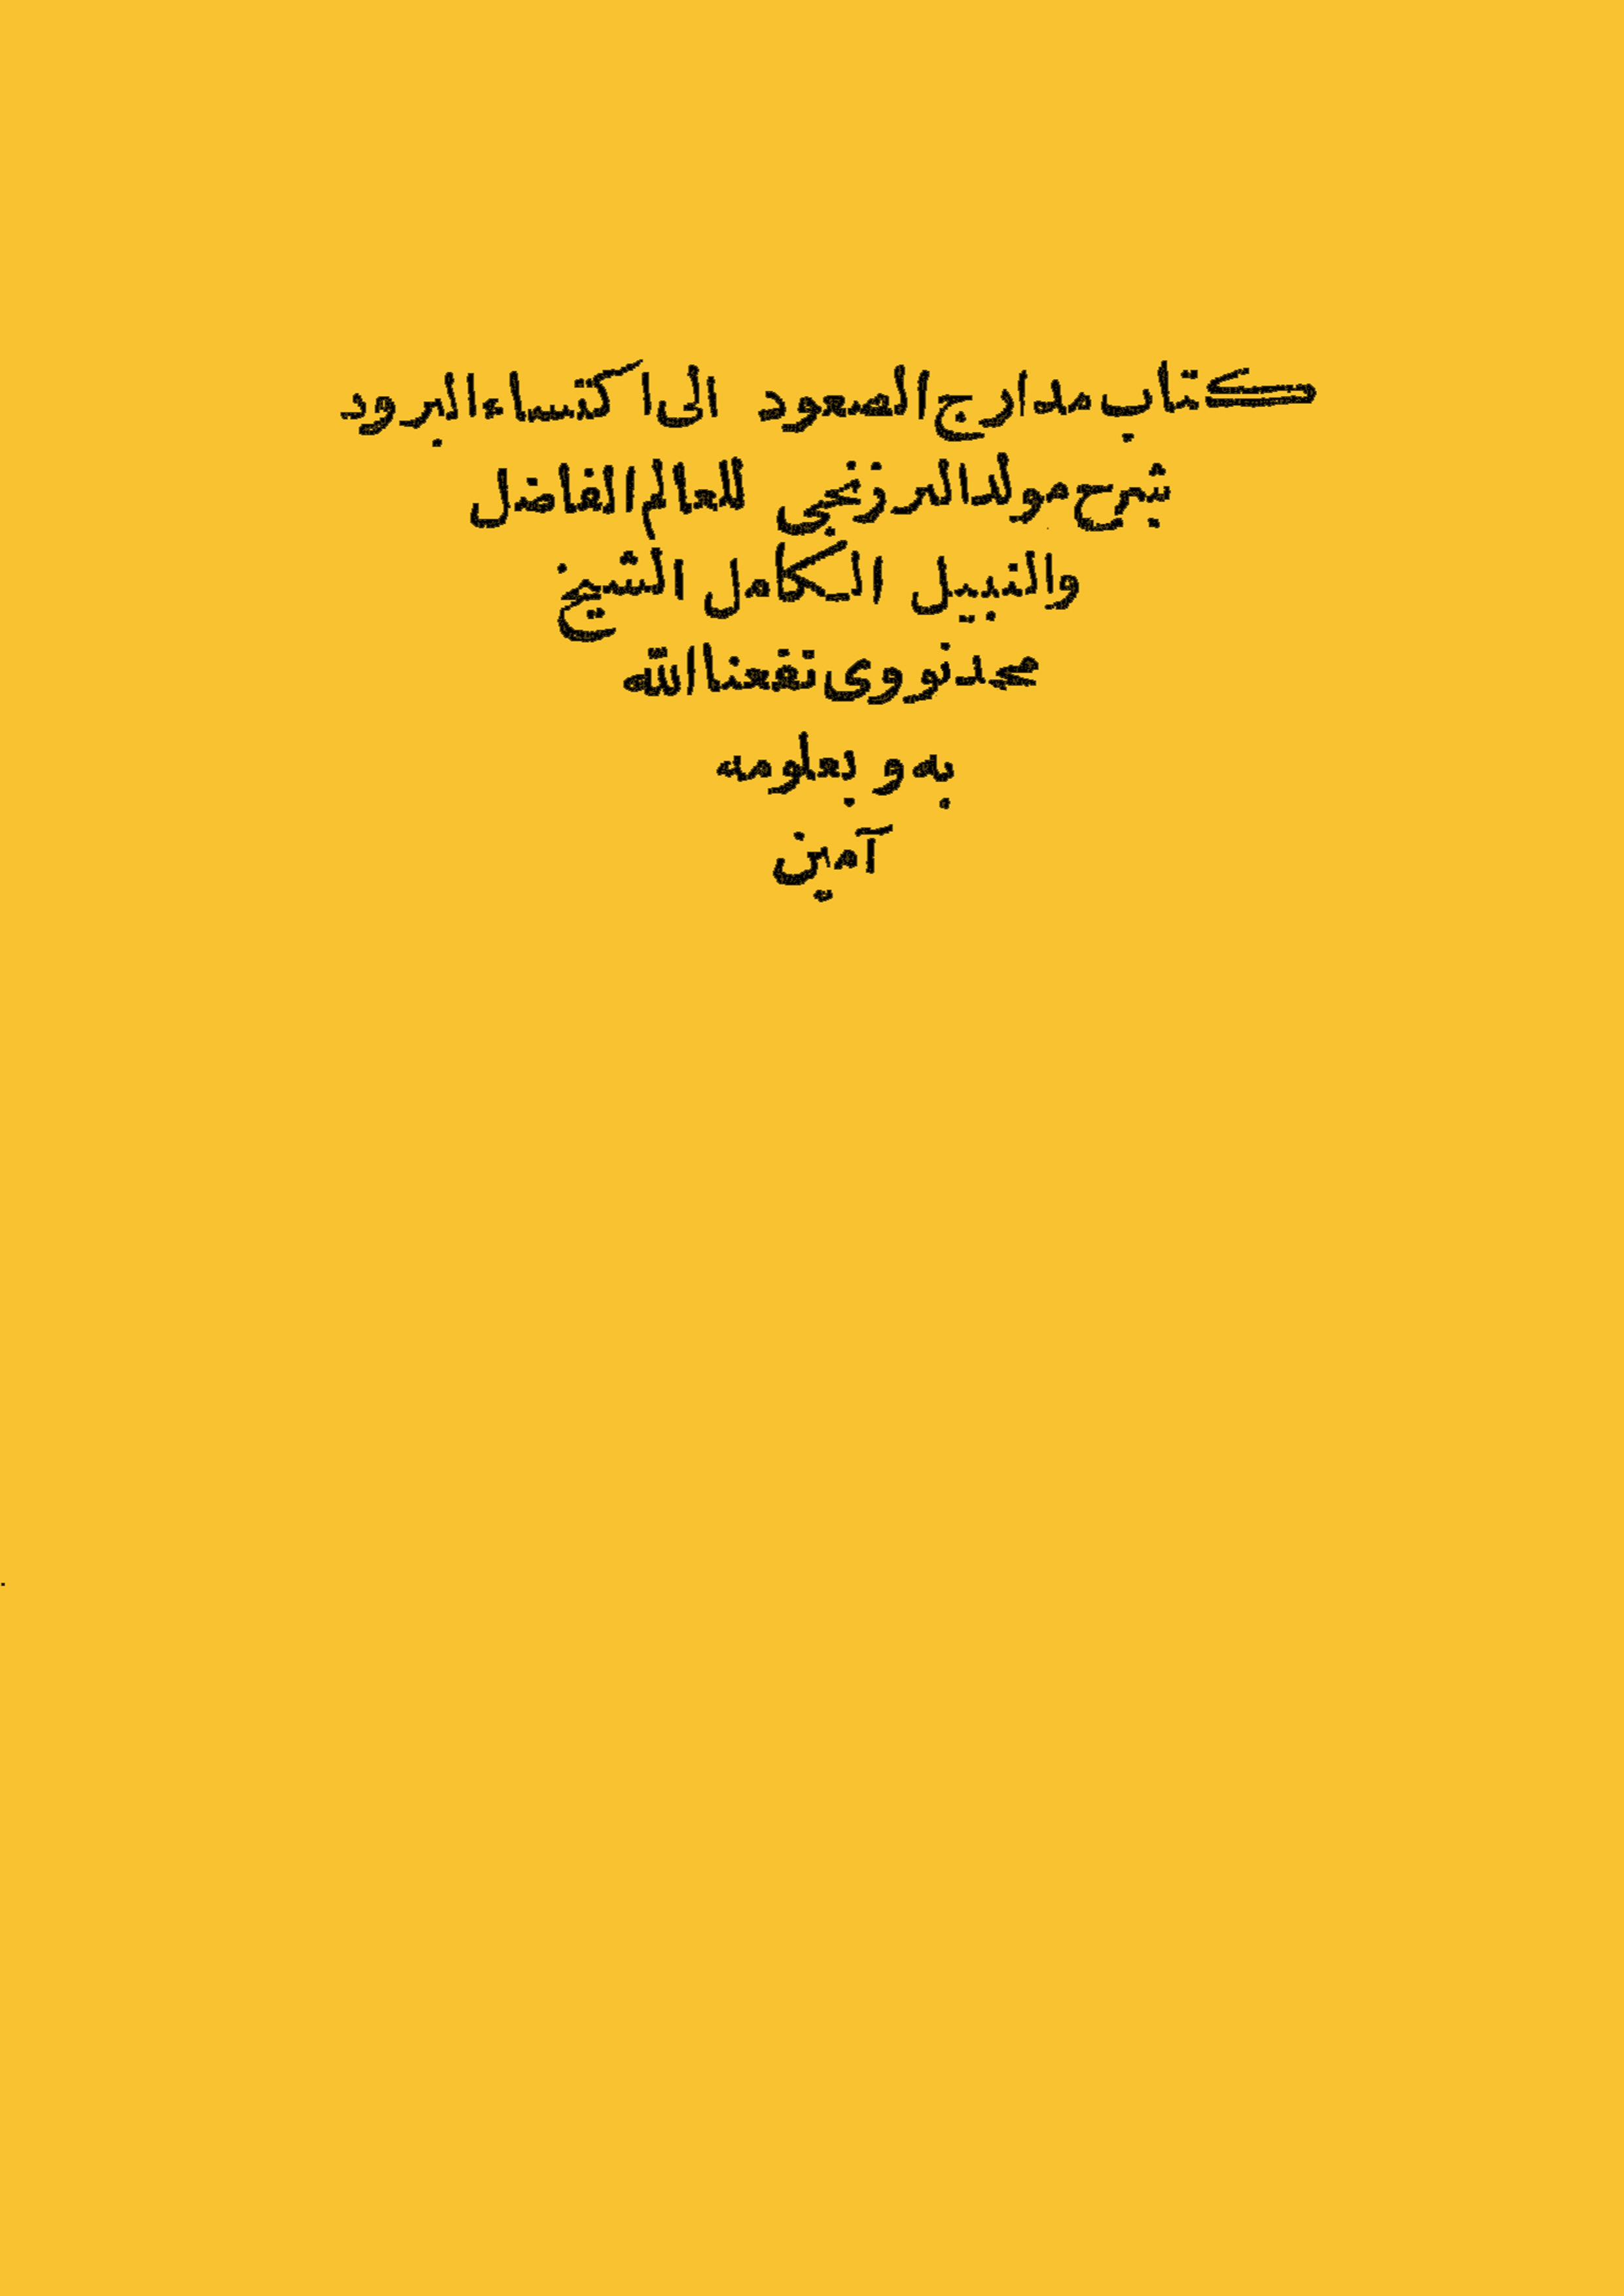 كتاب مدارج الصعود الى اكتساء البرود
شرح مولد البرزنجي للعالم الفاضل
والنبيل الكامل الشيخ
محمد نووى نفعنا الله
به وبعلومه
آمين